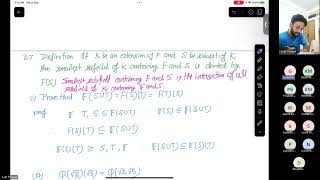 27 Definition If K be an extension of F and S be subset of K,
then smallest subfield of K containing F and S is denoted by
F(S) Smallest subfield containing F and S is the intersection of all
subfield of K containing F and S
(i) Prove that F(SUT) = F(S)(T) = F(T)(S)
Proof F T, S ⊆ F(SUT) F(S) ⊆ F(SUT)
∴ F(S)(T) ⊆ F(SUT)
F(S)(T) ⊇ S, T, F F(SUT) ⊆ F(S)(T)
(ii) Q(√3)(√5) = Q(√3,√5)
PM
KM